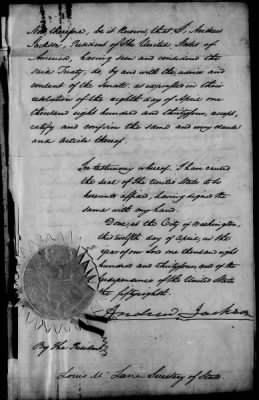 Now, therefore, be it known, that I, Andrew
Jackson, President of The United States of
America, having seen and considered the
said Treaty, do, by and with the advice and
consent of the Senate, as expressed in their
resolution of the eighth day of April one
thousand eight hundred and thirtyfour, accept,
ratify and confirm the same and every clause
and article thereof.
In testimony whereof, I have caused
the seal of the United States to be
hereunto affixed, having signed the
same with my hand.
Done, at the City of Washington,
this twelfth day of April, in the
year of our Lord one thousand eight
hundred and thirtyfour, and of the
Independence of the United States
the fiftyeighth.
Andrew Jackson
By The President
Louis McLane Secretary of State